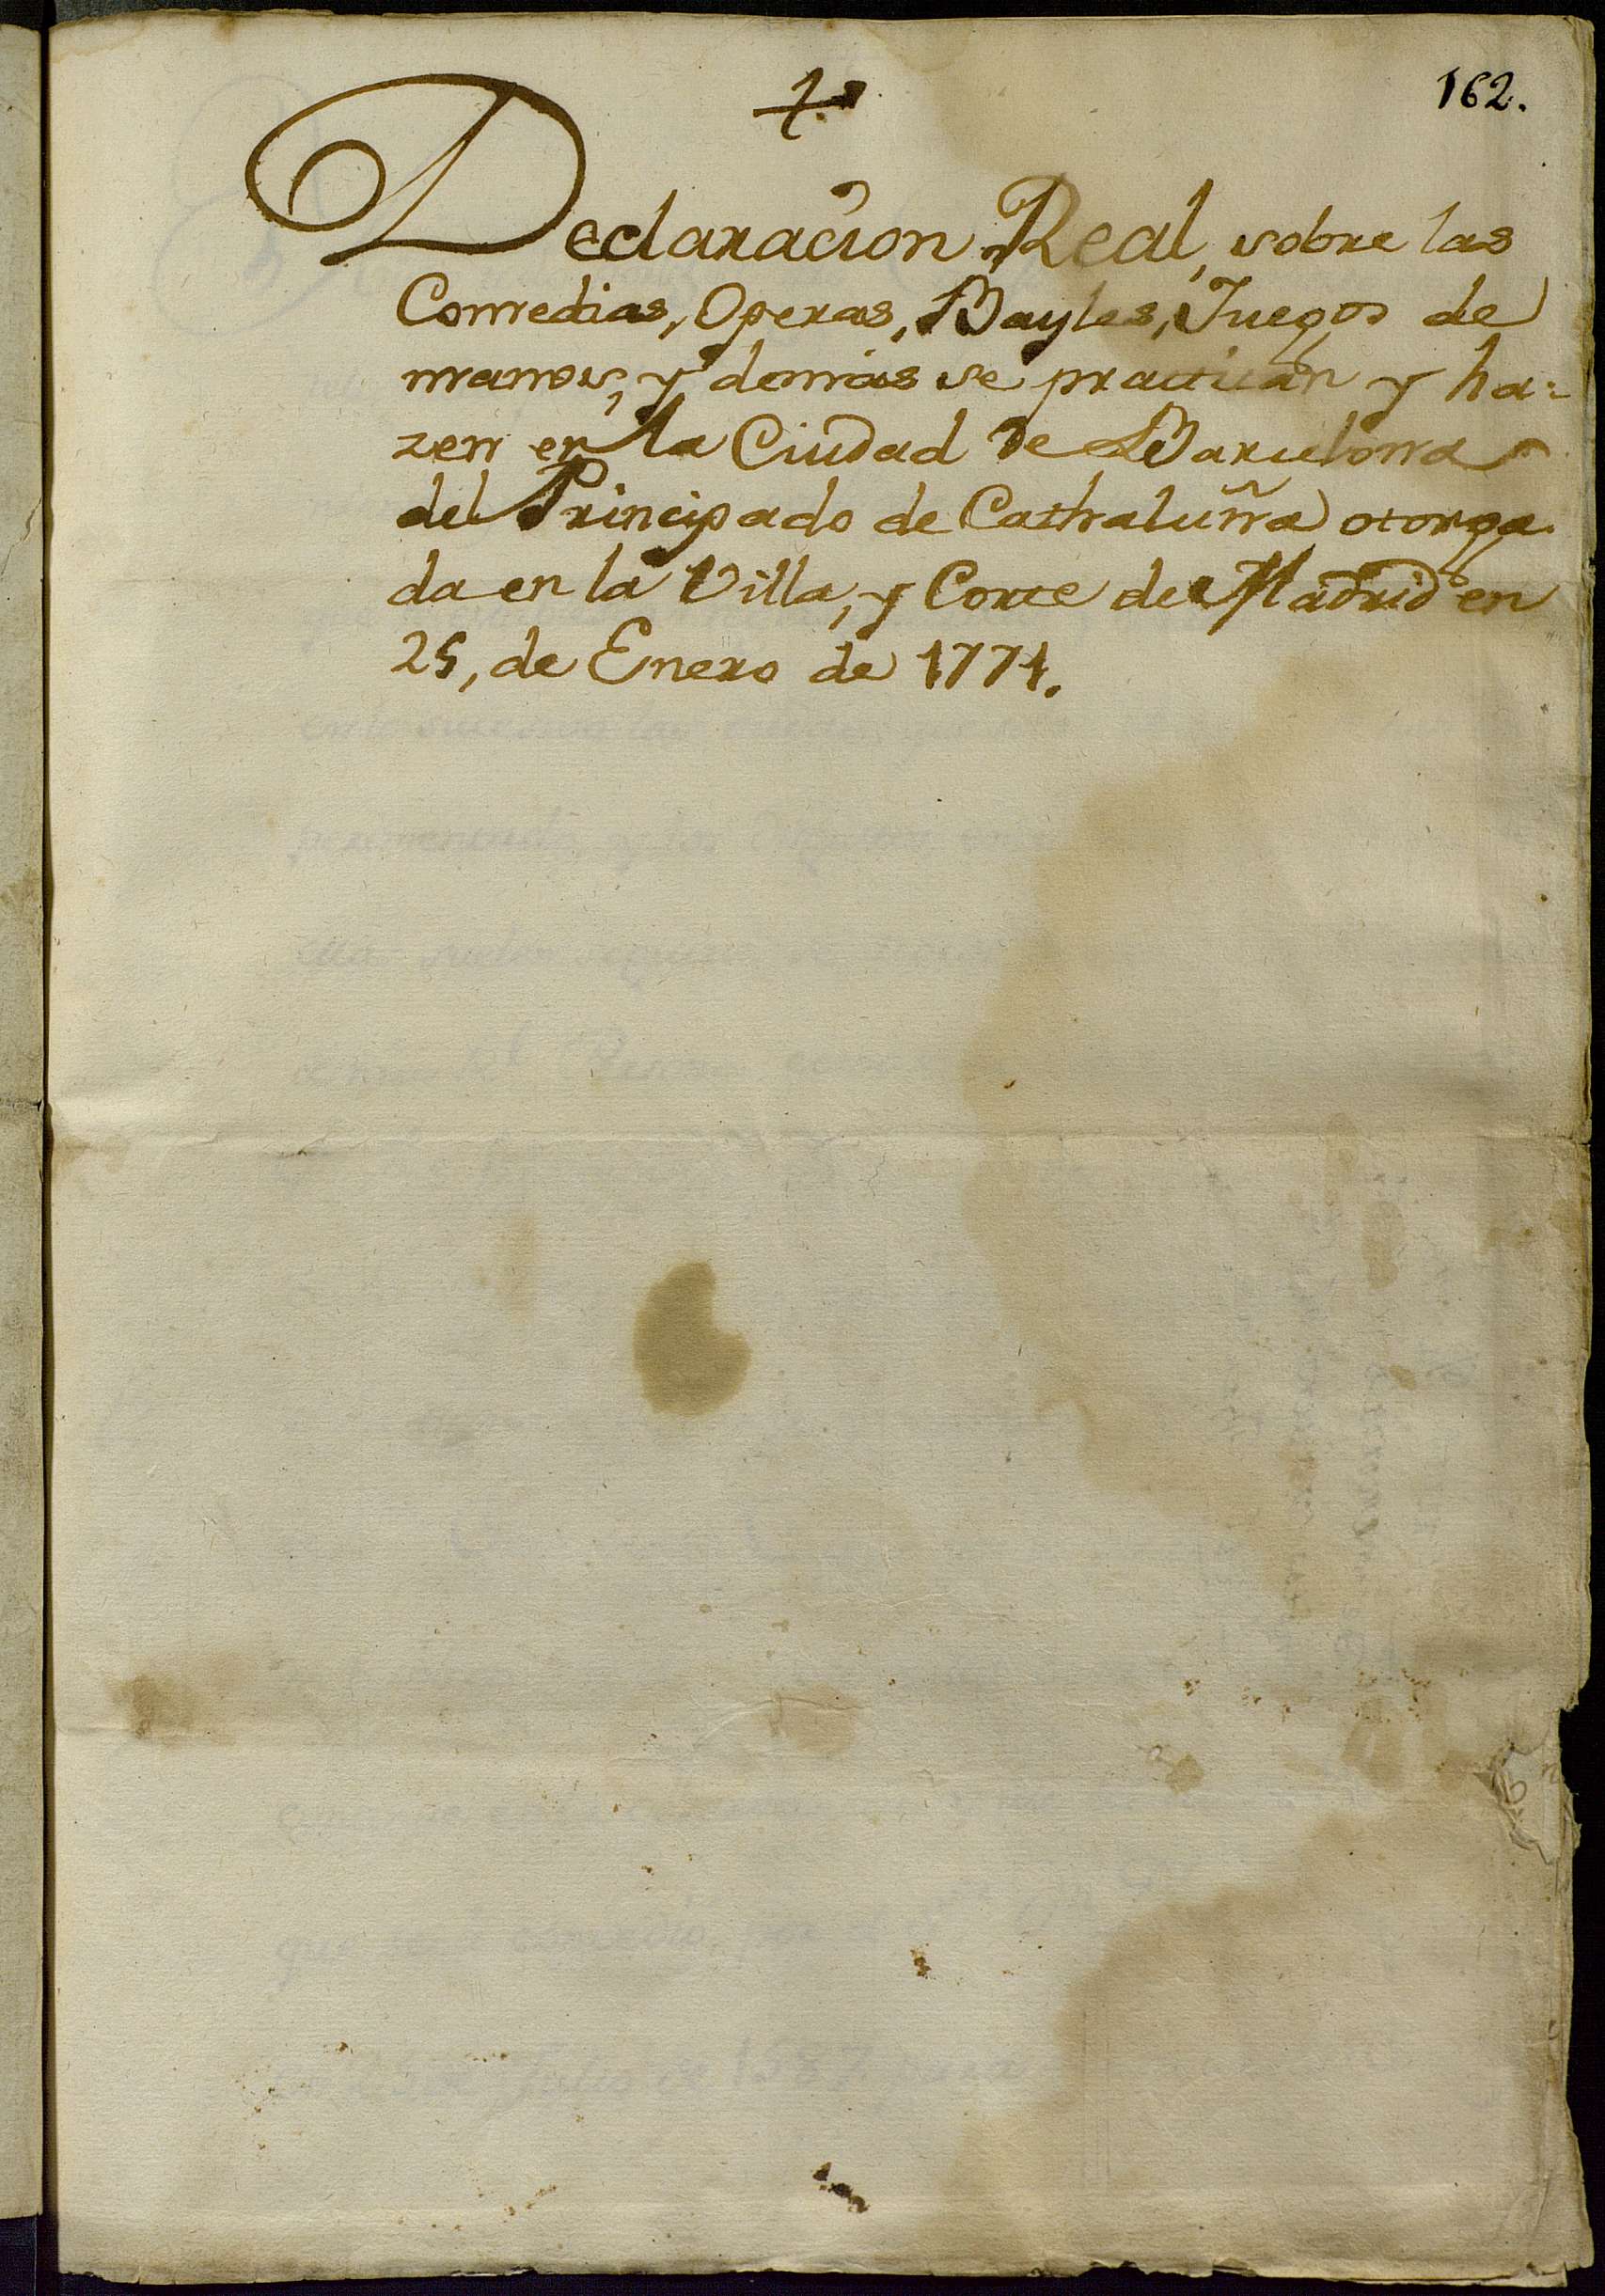 162.
Declaracion Real, sobre las
Comedias, Operas, Bayles, Juegos de
manos, y demás se practican y ha=
zen en la Ciudad de Barcelona
del Principado de Cathaluña otorga
da en la Villa, y Corte de Madrid en
25, de Enero de 1771.